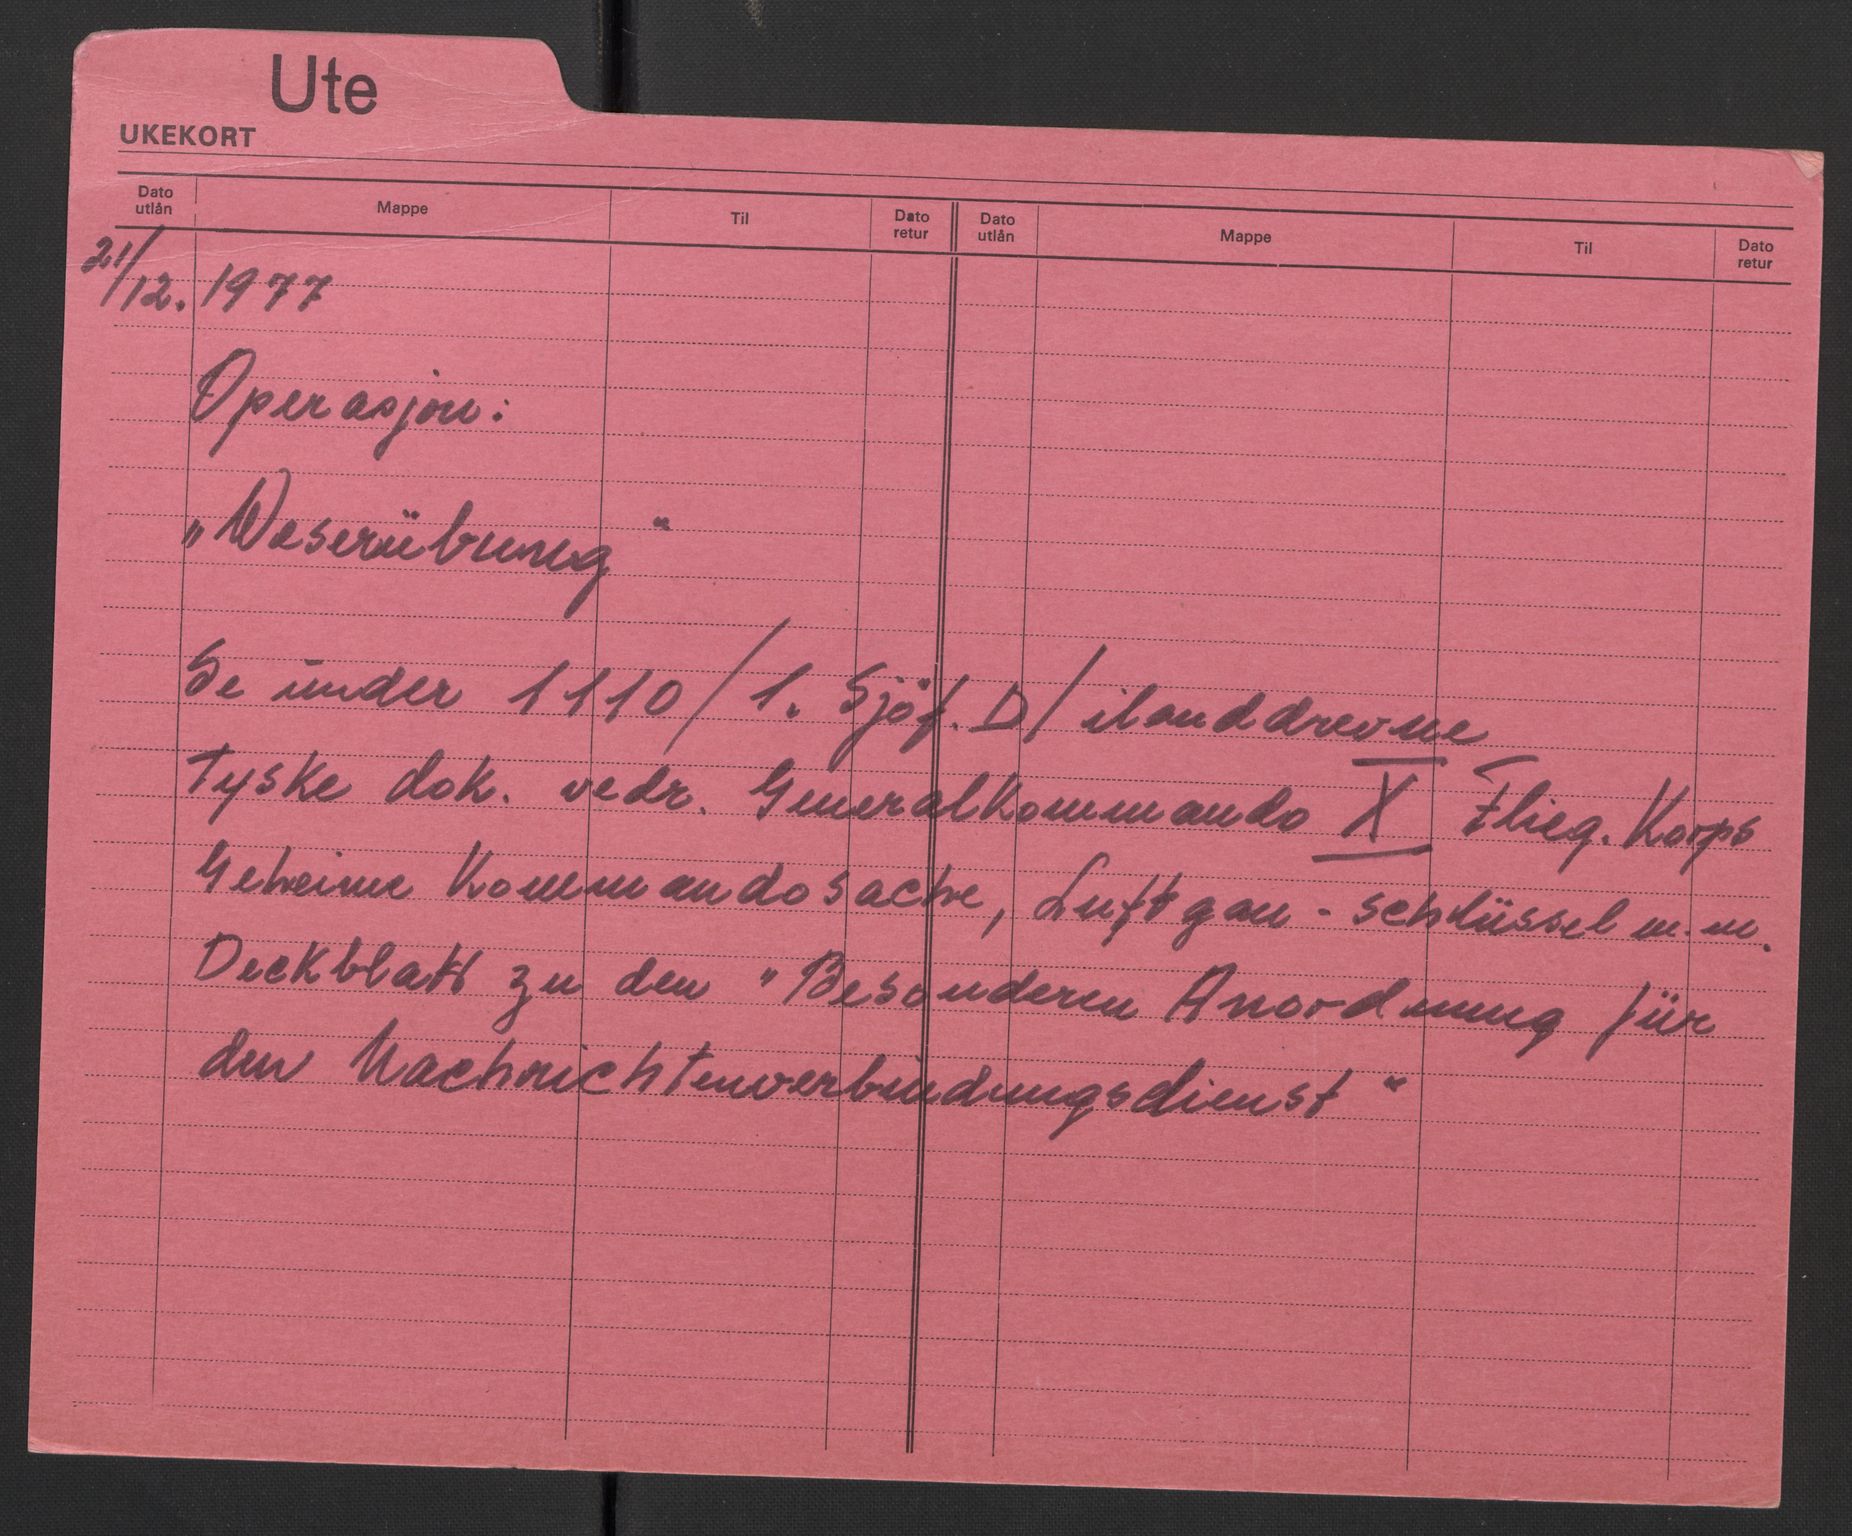 Ute
UKEKORT
Dato utlån Mappe Til Dato retur Dato utlån Mappe Til Dato retur
21/12. 1977
Operasjon:
„Weserübung“
Se under 1110/1. Sjöf. D/ ilanddrevne
Tyske dok. vedr. Generalkommando X Flieg. Korps
Geheime Kommandosache, Luftgau-schlüssel m.m.
Deckblatt zu den "Besonderen Anordnung für
den Nachrichtenverbindungsdienst"